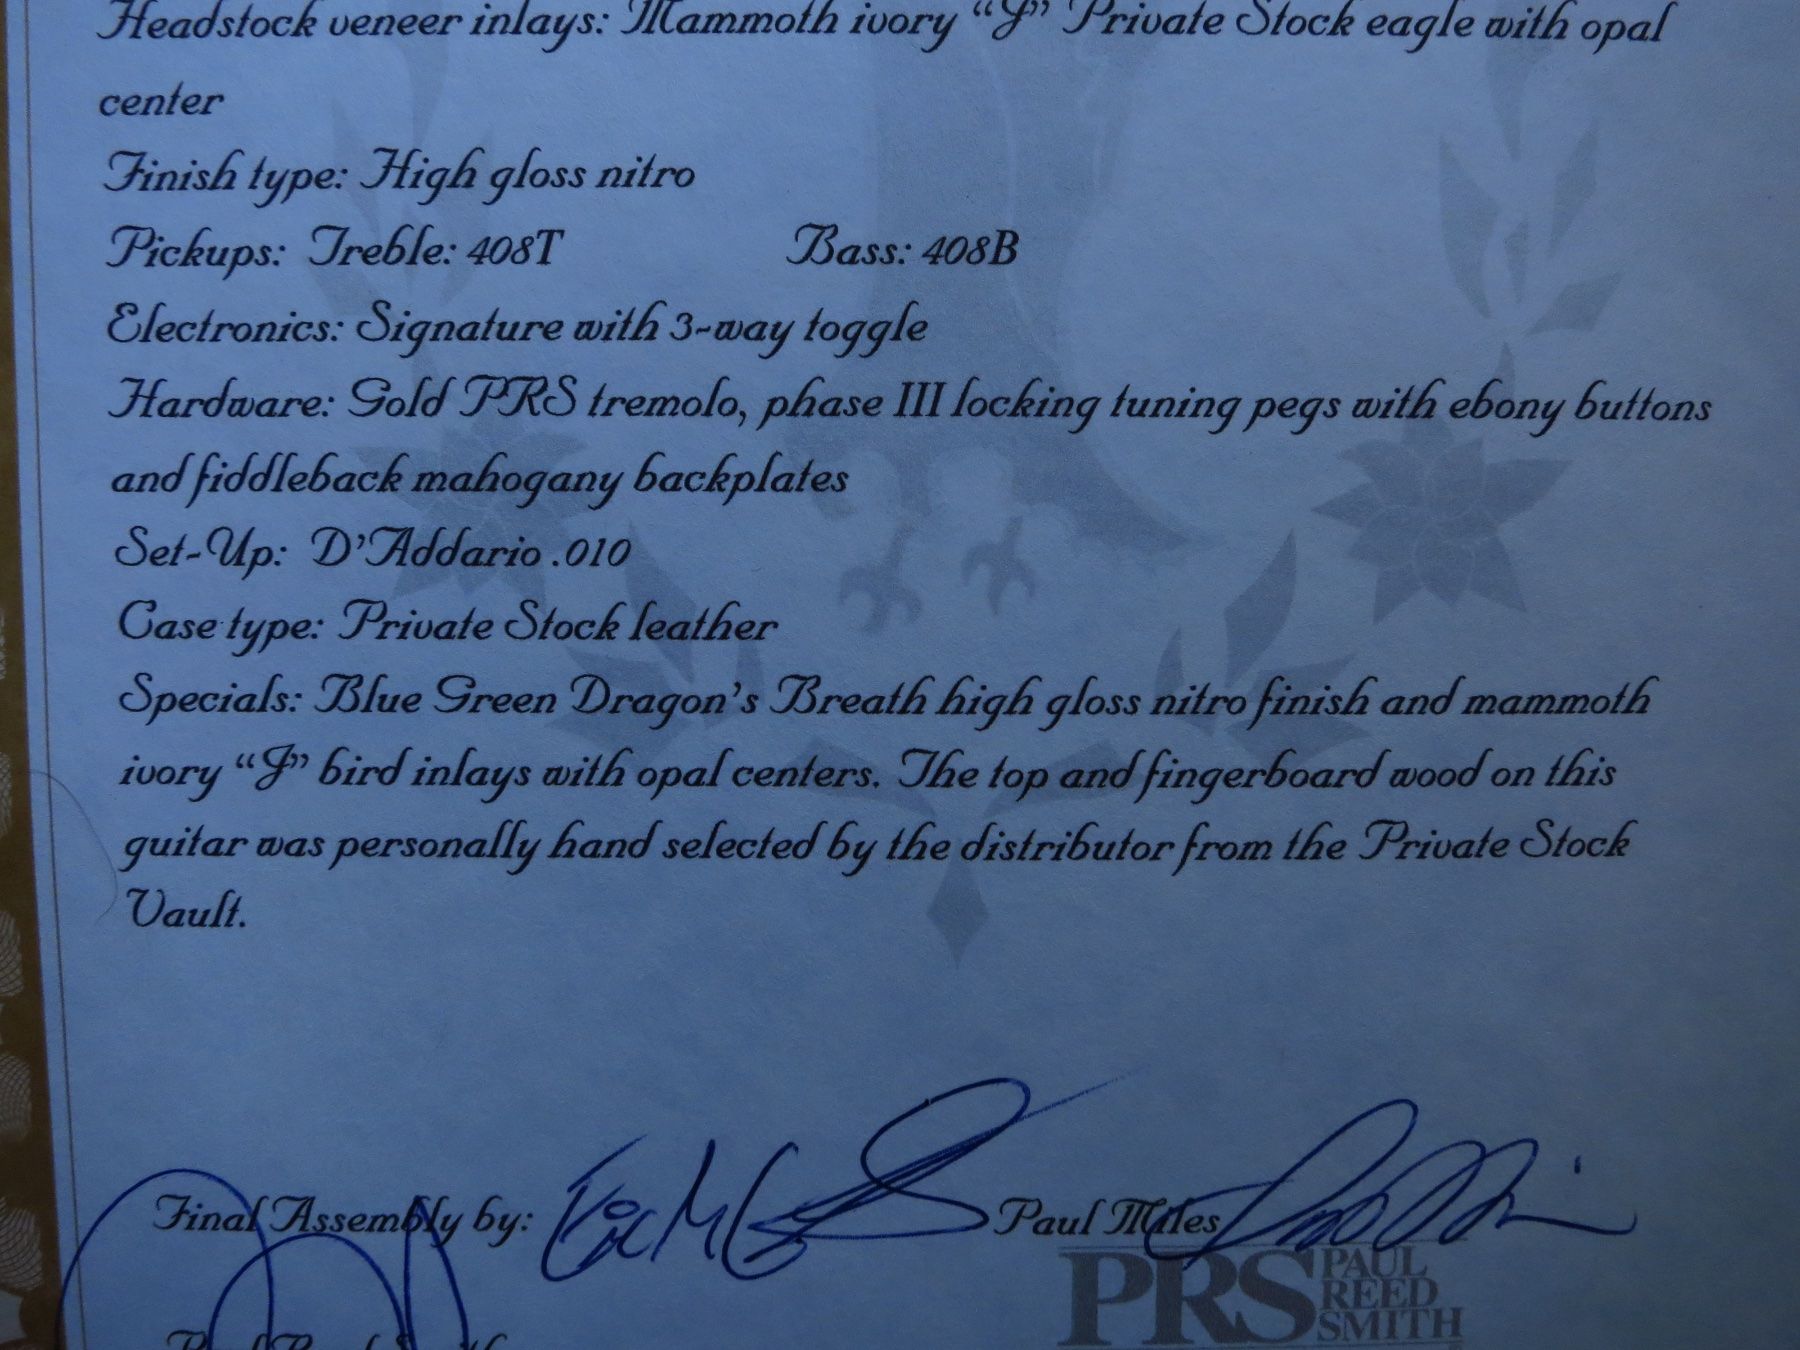 Headstock veneer inlays: Mammoth ivory “J” Private Stock eagle with opal
center
Finish type: High gloss nitro
Pickups: Treble: 408T Bass: 408B
Electronics: Signature with 3-way toggle
Hardware: Gold PRS tremolo, phase III locking tuning pegs with ebony buttons
and fiddleback mahogany backplates
Set-Up: D’Addario .010
Case type: Private Stock leather
Specials: Blue Green Dragon’s Breath high gloss nitro finish and mammoth
ivory “J” bird inlays with opal centers. The top and fingerboard wood on this
guitar was personally hand selected by the distributor from the Private Stock
Vault.
Final Assembly by: Paul Miles
PRS PAUL
REED
SMITH
Paul Reed Smith